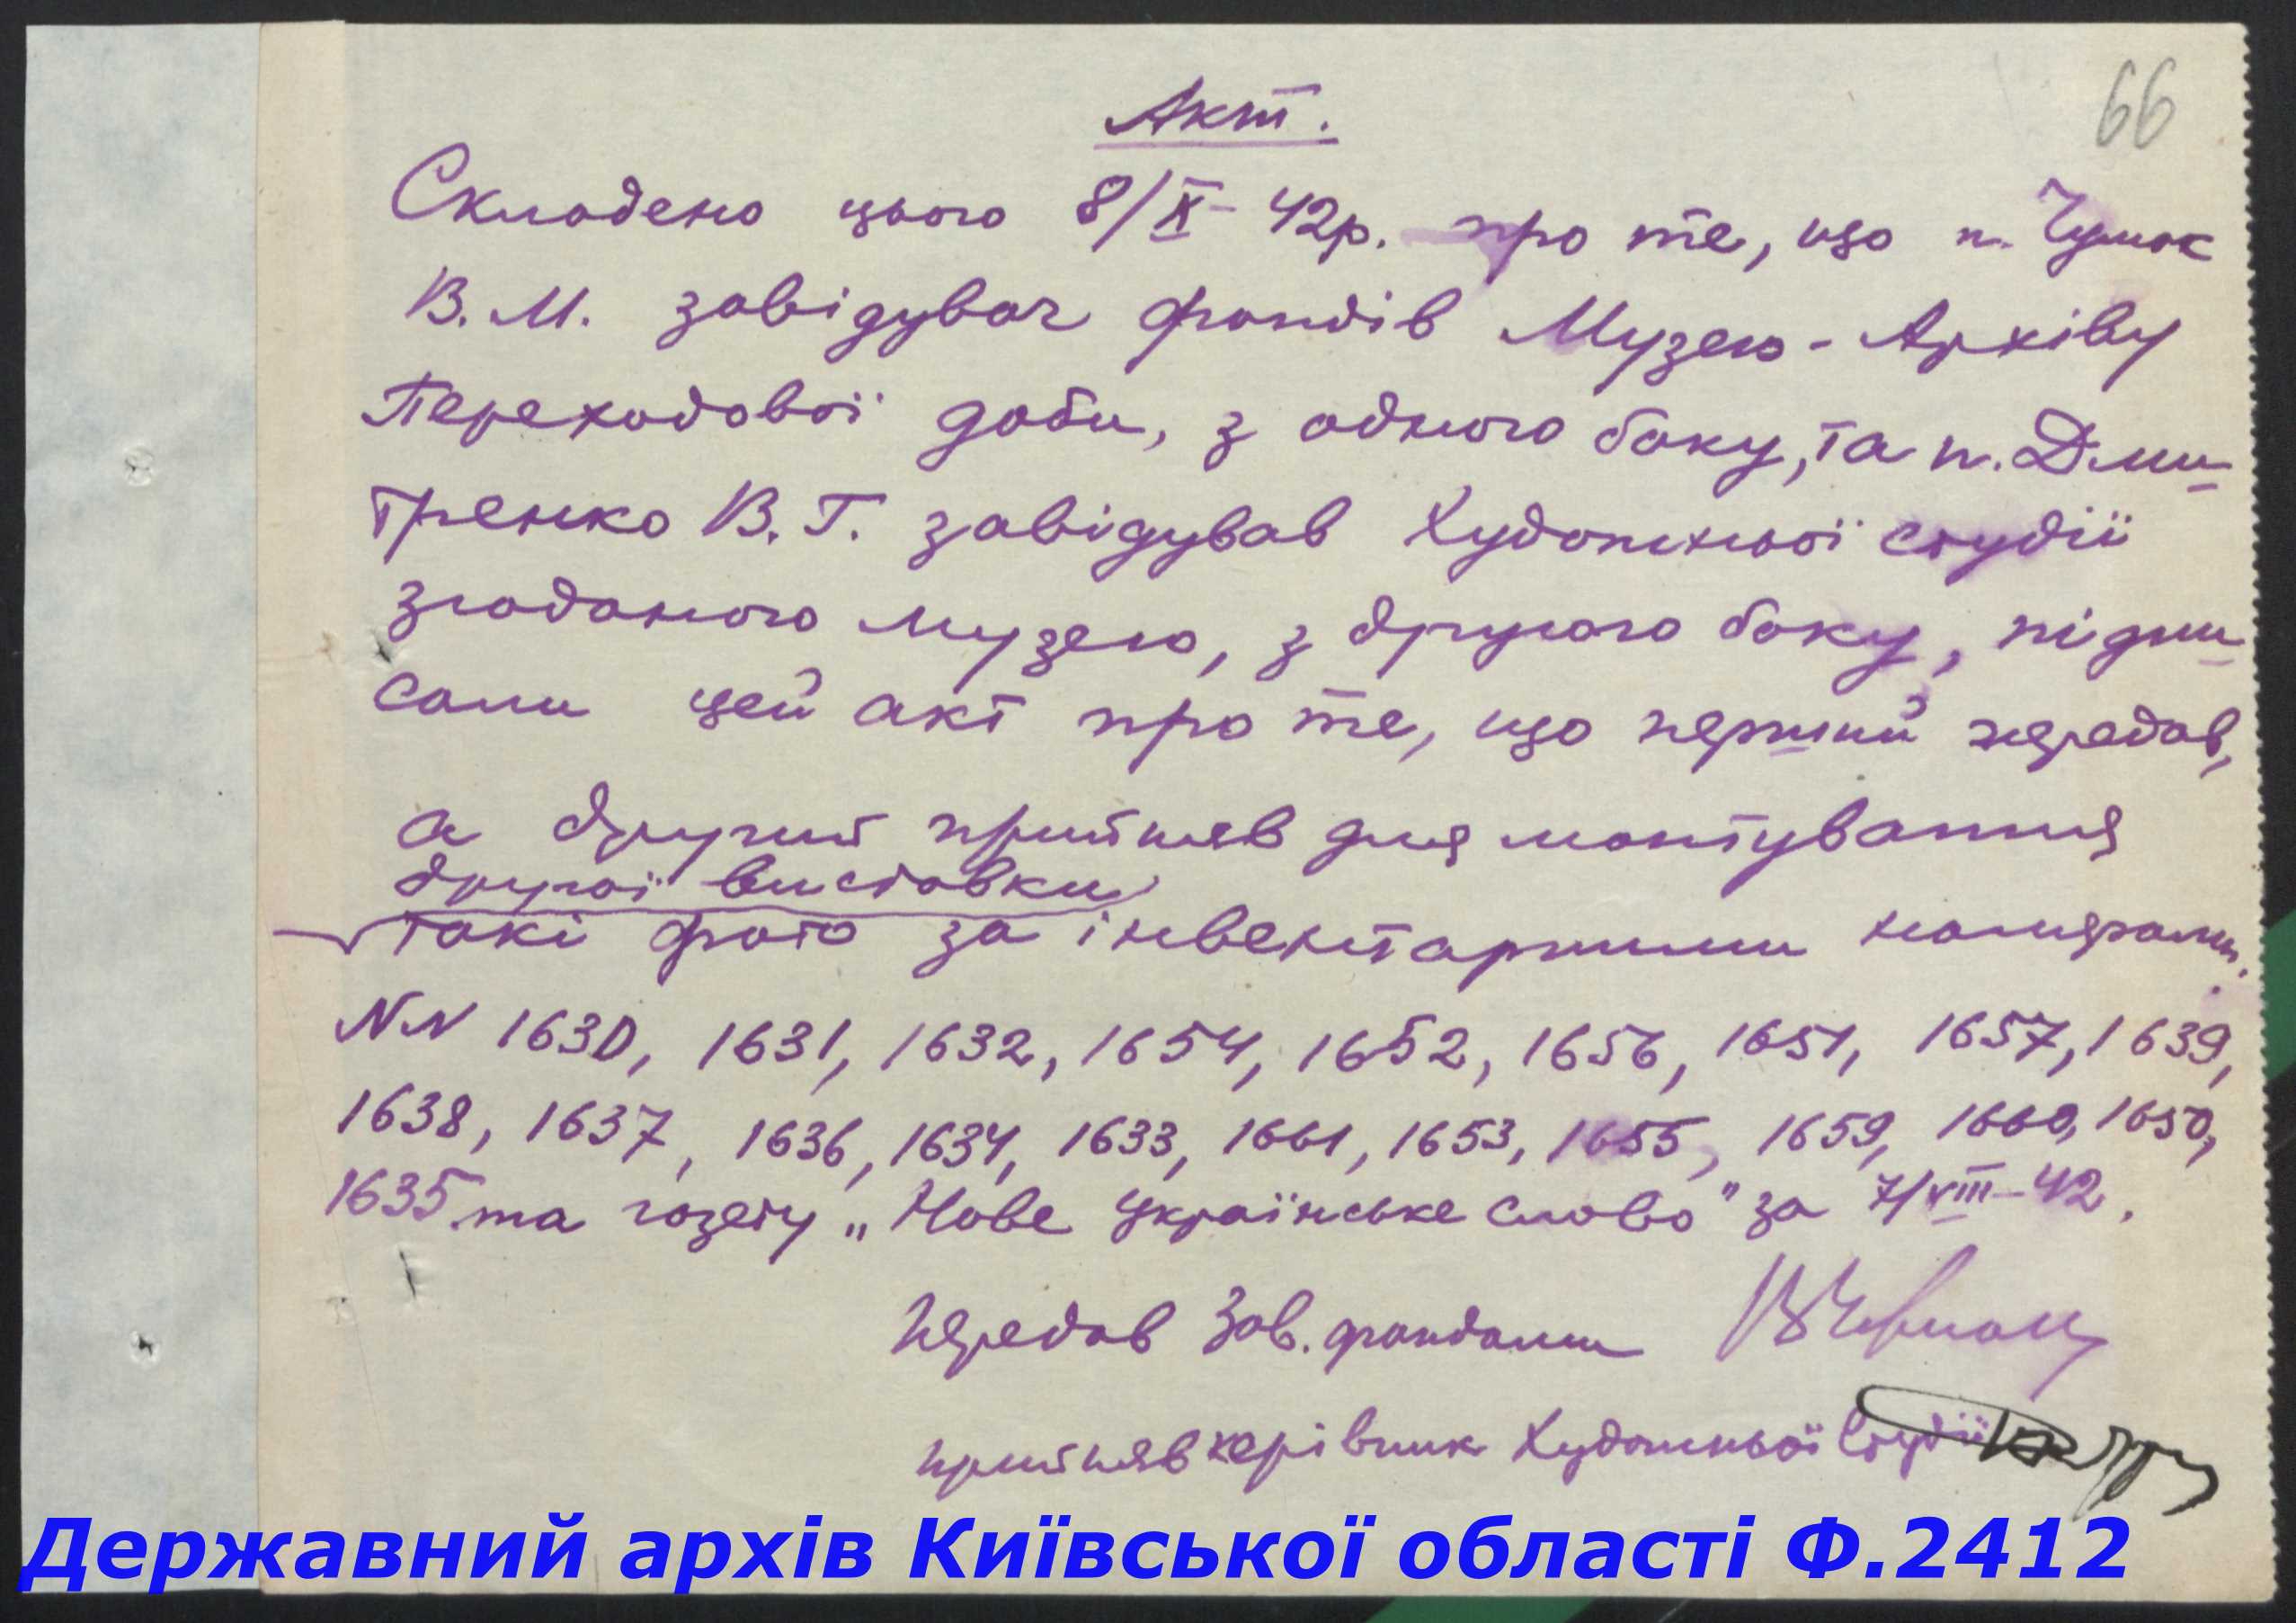 66
Акт.
Складено цього 8/ІХ- 42р. про те, що п. Чумак
В. М. завідувач фондів Музею - Архіву
Переходової доби, з одного боку, та п. Дми-
тренко В. Г. завідував Художньої студії
згаданого музею, з другого боку, підпи-
сали цей акт про те, що перший передав,
а другий прийняв для монтування
другої виставки
такі фото за інвентарними номерами.
NN 1630, 1631, 1632, 1654, 1652, 1656, 1651, 1657, 1639,
1638, 1637, 1636, 1634, 1633, 1661, 1653, 1655, 1659, 1660, 1650,
1635 та газету „Нове Українське Слово" за 7/VIII-42.
Передав Зав. фондами
прийняв керівник Художньої Студії
Державний архів Київської області Ф.2412